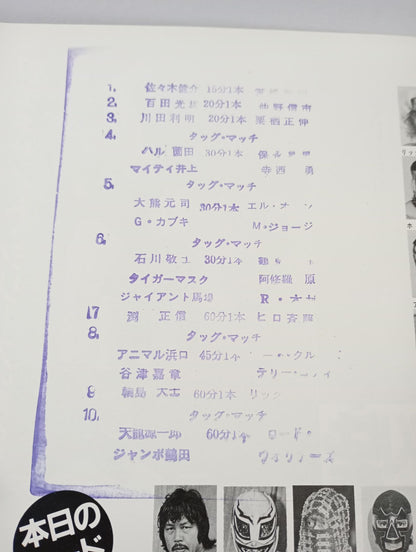 1. 佐々木健介 15分1本
2. 百田光雄 20分1本 仲野信市
3. 川田利明 20分1本 栗栖正伸
4. タッグ・マッチ
ハル薗田 30分1本
マイティ井上 寺西 勇
5. タッグ・マッチ
大熊元司 30分1本 エル・
G・カブキ M・ジョージ
6. タッグ・マッチ
石川敬士 30分1本 鶴
タイガーマスク 阿修羅 原
ジャイアント馬場 R・木村
17 渕 正信 60分1本 ヒロ斉藤
8. タッグ・マッチ
アニマル浜口 45分1本 クル
谷津嘉章 テリー・
9 輪島 大士 60分1本 リック
10. タッグ・マッチ
天龍源一郎 60分1本 ロード・
ジャンボ鶴田 ウォリアーズ
リッ
ホ
本日の